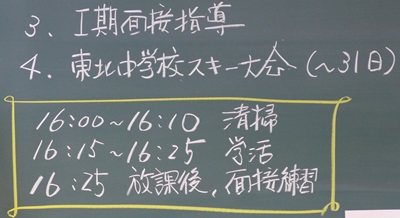 3. I期面接指導
4. 東北中学校スキー大会(～31日)
16:00～16:10 清掃
16:15～16:25 学活
16:25 放課後、面接練習